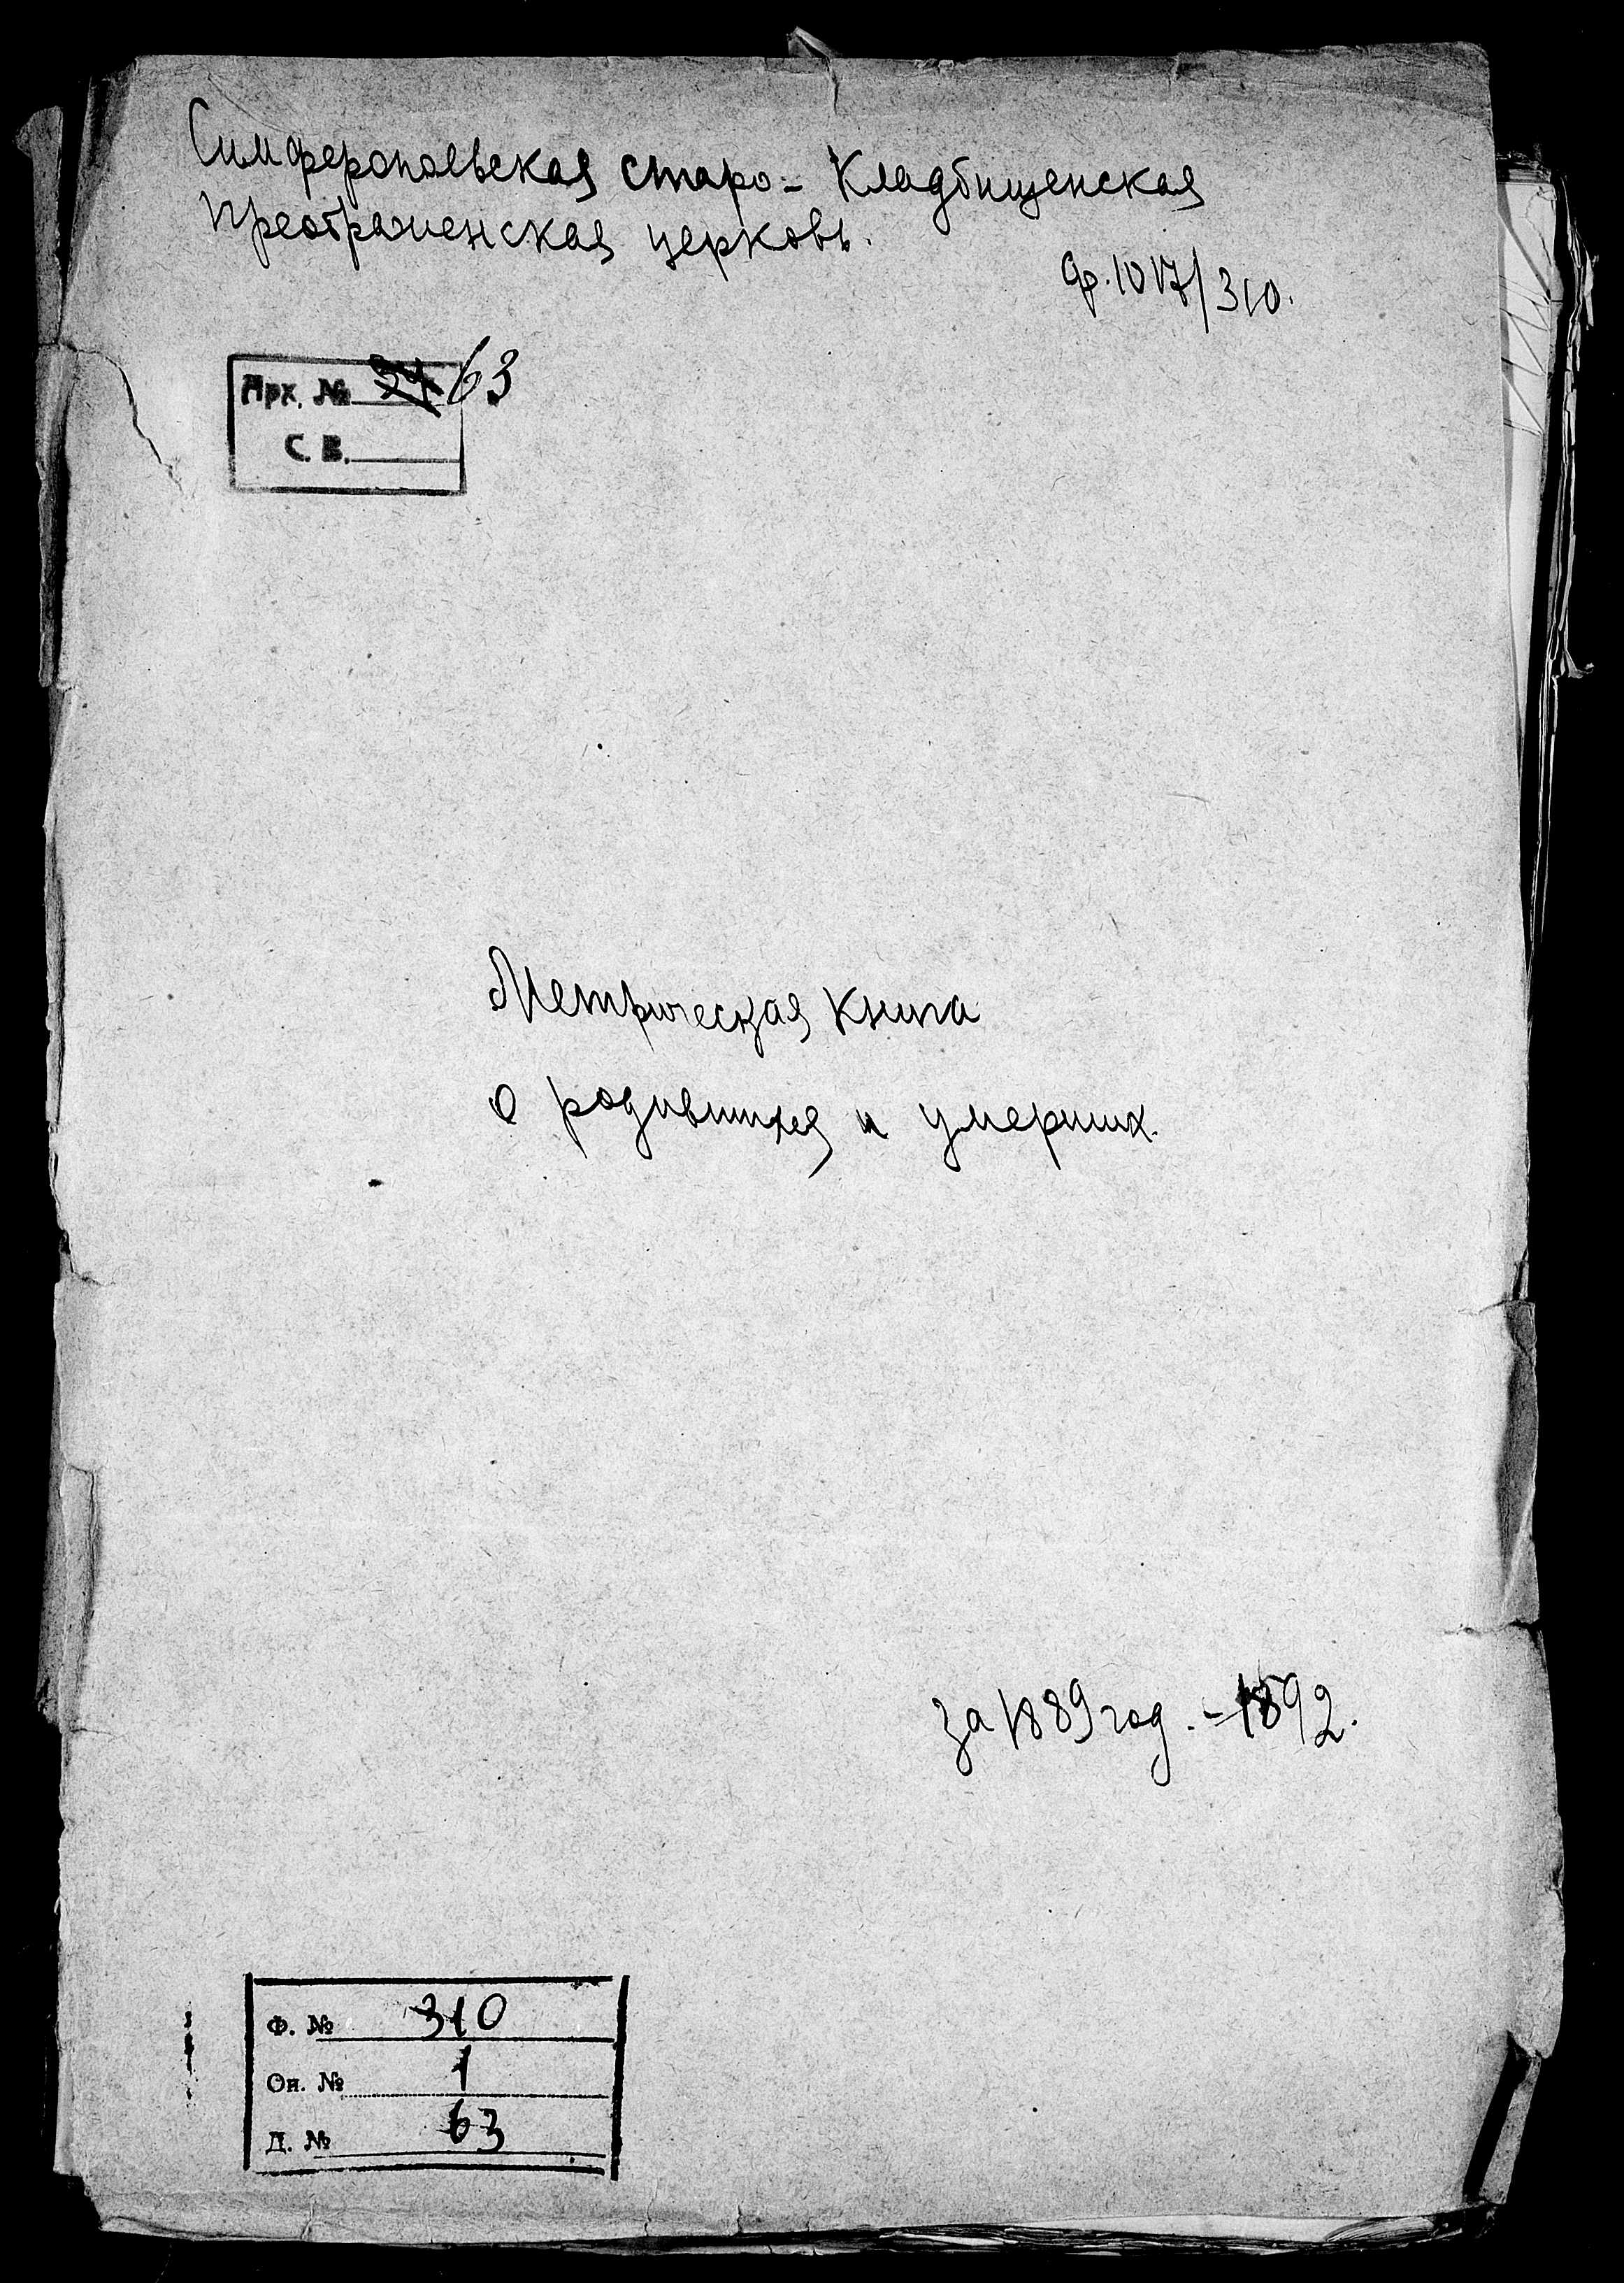 Симферопольская старо-Кладбищенская
Преображенская церковь.
ф. 1017/310.
Арх. № 63
С. В.
Метрическая книга
о родившихся и умерших.
за 1889 год. - 1892.
Ф. № 310
Оп. № 1
Д. № 63